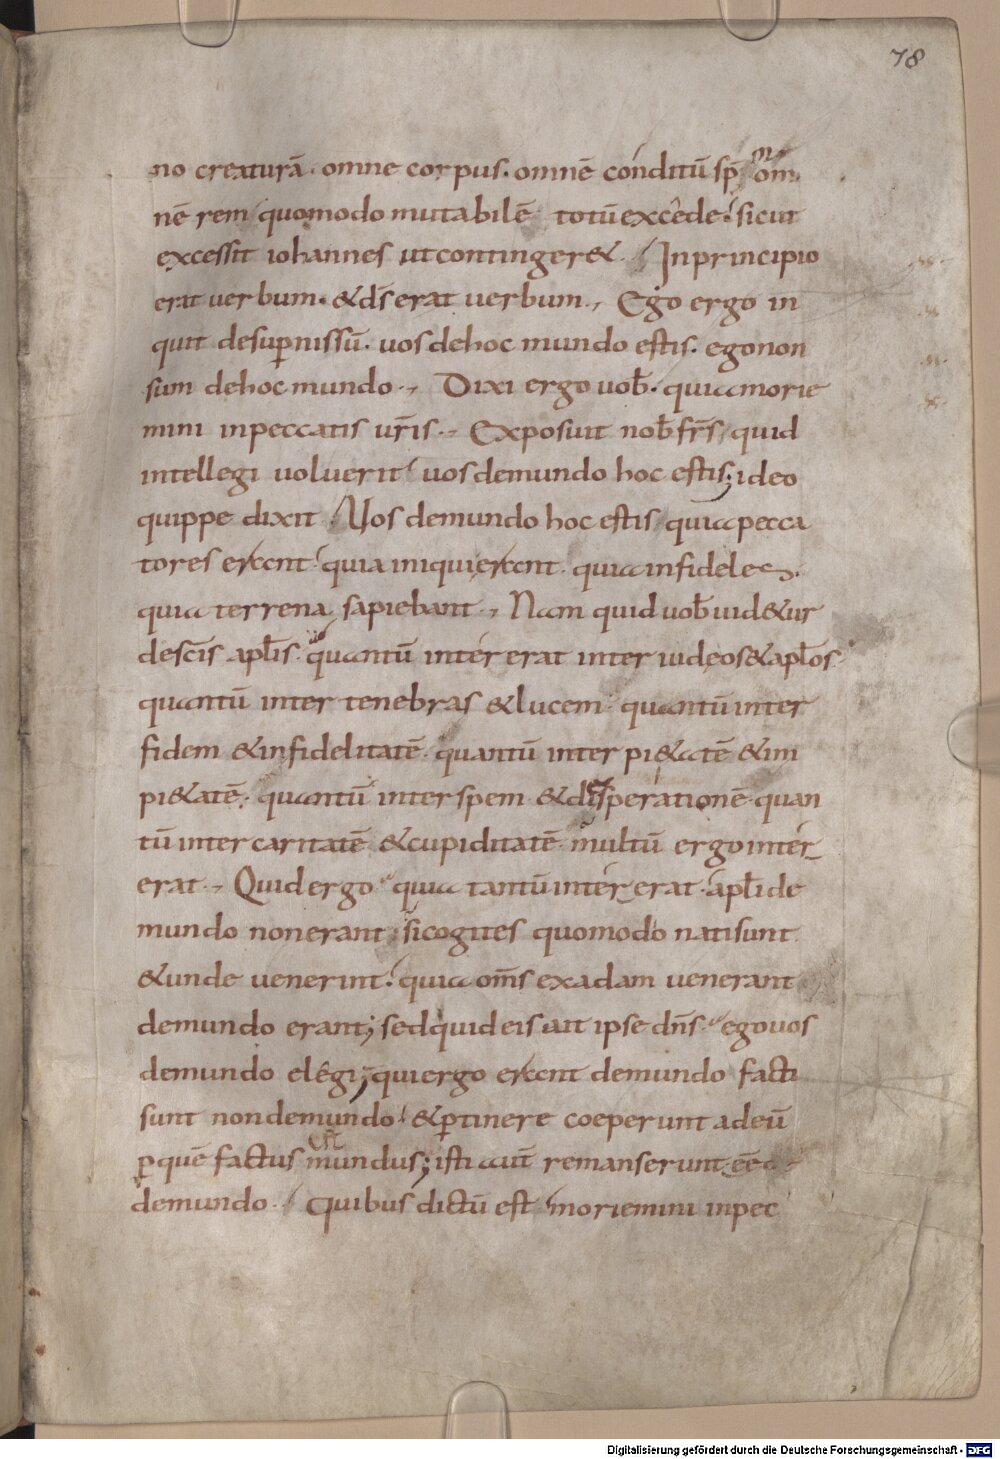 78
no creaturā. omne corpus. omnē conditū sp̄m om
nē rem quomodo mutabilē totū excede. sicut
excessit iohannes ut contingeret. In principio
erat uerbum. & d̄s erat uerbum. Ego ergo in
quit desup̱nis sū. uos de hoc mundo estis. ego non
sum de hoc mundo. Dixi ergo uob̄. quia morie
mini in peccatis ur̄is. Exposuit nob̄ fr̄s quid
intellegi uoluerit uos de mundo hoc estis; ideo
quippe dixit. Uos de mundo hoc estis quia pecca
tores erant quia iniqui erant. quia infideles.
quia terrena sapiebant. Nam quid uob̄ uid&ur
de sc̄is apl̄is. quantū inter erat inter iudeos & apl̄os
quantū inter tenebras & lucem. quantū inter
fidem & infidelitatē. quantū inter pi&atē & im
pi&atē. quantū inter spem & desperationē. quan
tū inter caritatē & cupiditatē. multū ergo inter
erat. Quid ergo quia tantū inter erat. apl̄i de
mundo non erant; si cogites quomodo nati sunt
& unde uenerint. quia om̄s ex adam uenerant
de mundo erant; sed quid eis ait ipse dn̄s. ego uos
de mundo elegi; qui ergo erant de mundo facti
sunt non de mundo & p̱tinere coeperunt ad eū
p̱ quē factus est mundus; isti aut̄ remanserunt ēē
de mundo. Quibus dictū est moriemini in pec
Digitalisierung gefördert durch die Deutsche Forschungsgemeinschaft - DFG